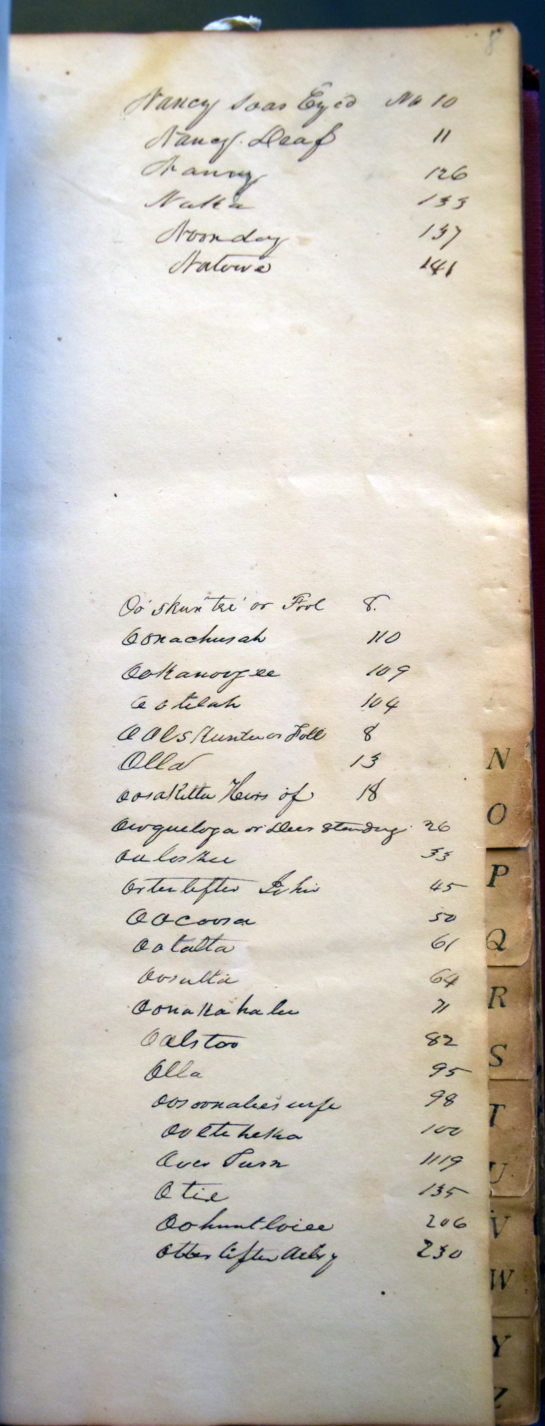 8
Nancy Soar Eyed No 10
Nancy Deaf 11
Nanny 126
Naka 133
Noonday 137
Natowe 141
Oo'skun'tee' or Fool 8.
Oonachusah 110
Ookanoogee 109
Ootelah 104
OOlskunte or Foll 8
Olla 13
Oosakitta Heirs of 18
Owoqueloga or Deer Standing 26
33
Orterlifter John 45
Oocoosa 50
Ootalta 61
Oosutta 64
Oonakahale 71
Oolstoo 82
Olla 95
Oosoonalie's wife 98
Oolteheska 100
Over Turn 1119
Otie 135
Oohuntloiee 206
Otterlifter 230
N
O
P
Q
R
S
T
U
V
W
Y
Z